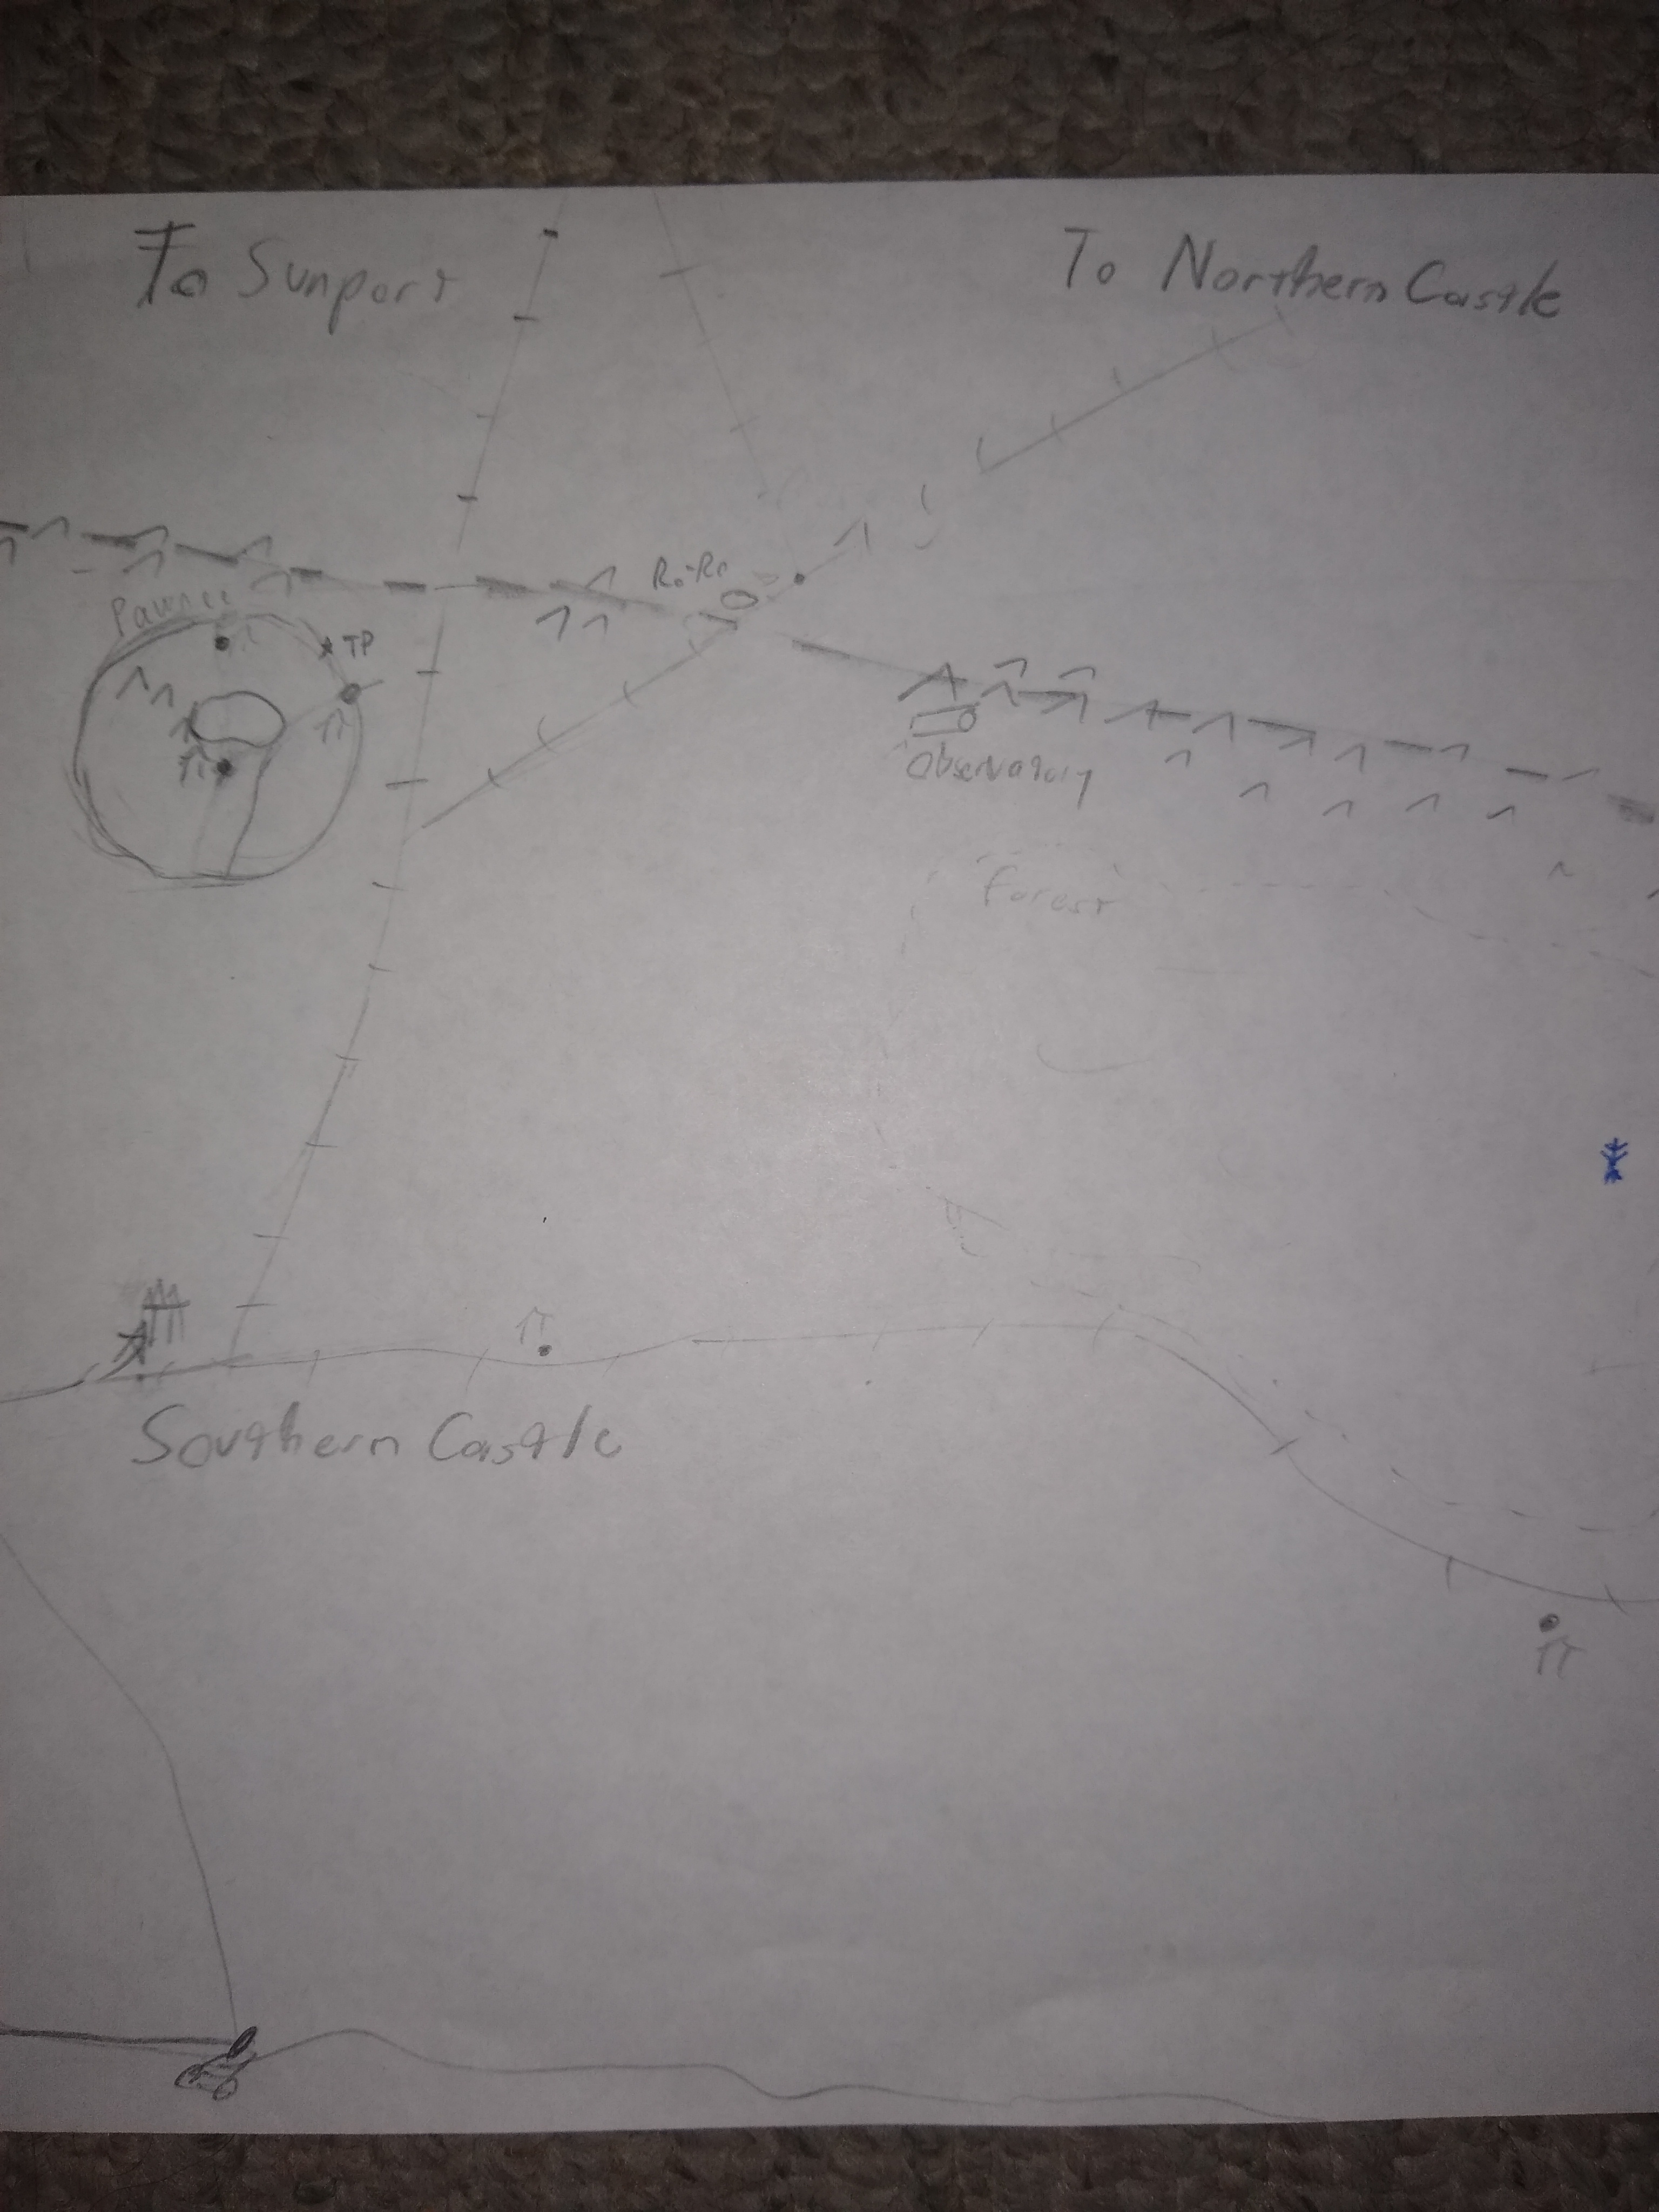 To Sunport
To Northern Castle
Ro-Ro
Pawnee
TP
Observatory
forest
Southern Castle